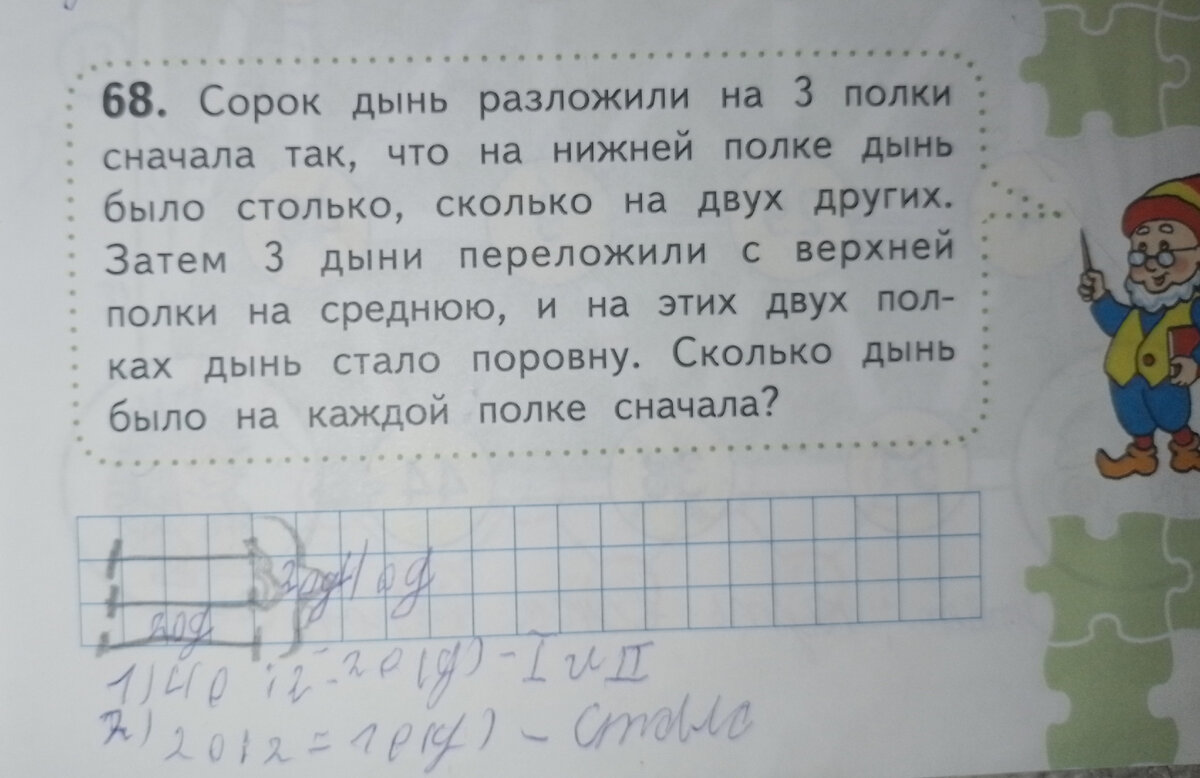 68. Сорок дынь разложили на 3 полки
сначала так, что на нижней полке дынь
было столько, сколько на двух других.
Затем 3 дыни переложили с верхней
полки на среднюю, и на этих двух пол-
ках дынь стало поровну. Сколько дынь
было на каждой полке сначала?
20д 40д
20д
1) 40:2=20(д) - I и II
2) 20:2=10(д) - стало